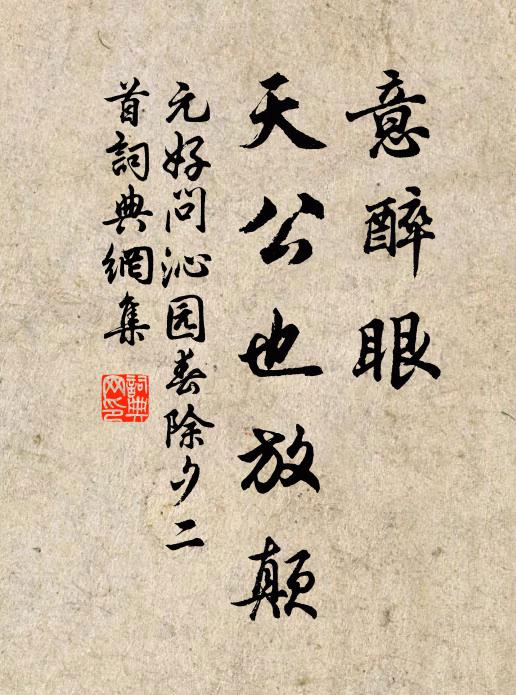 意醉眼
天公也放颠
元好问沁园春除夕二
首詞典網集
詞典网印